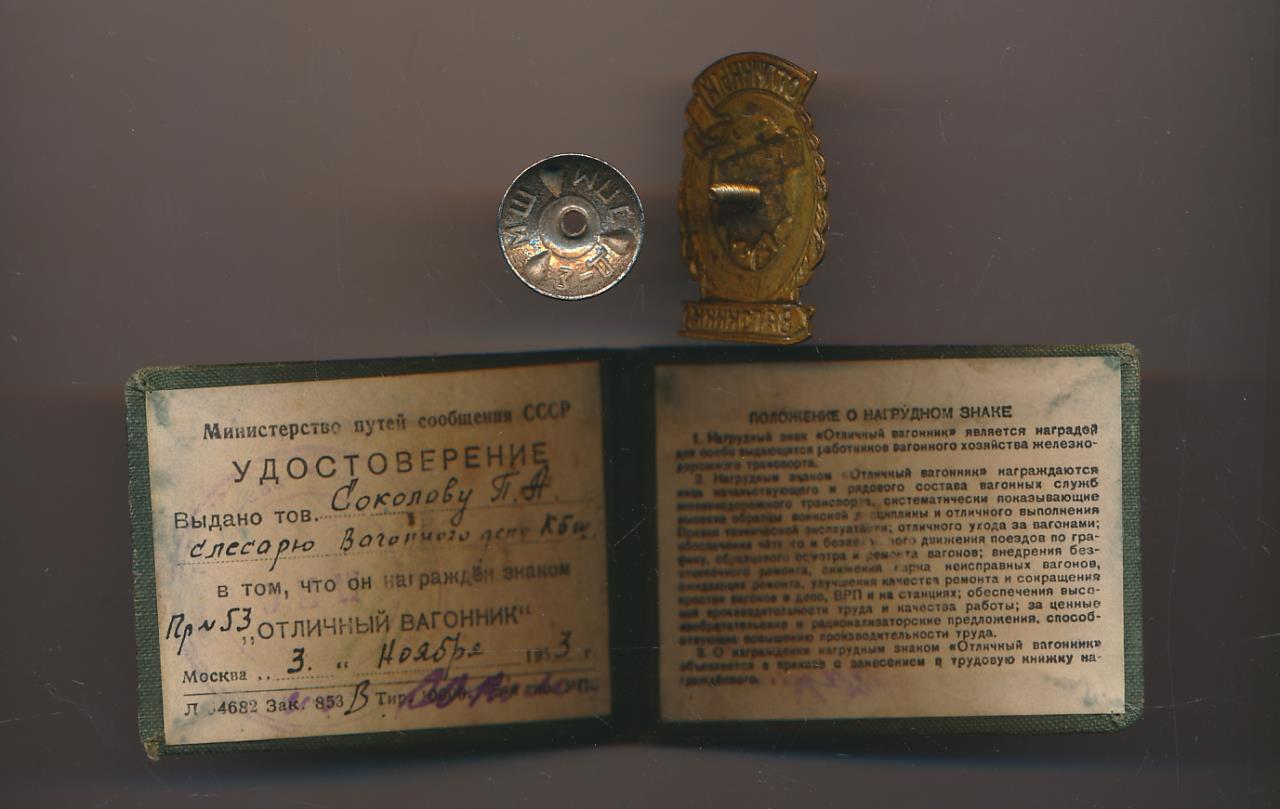 МШ МПС
З-Д
ОТЛИЧНЫЙ
ВАГОННИК
Министерство путей сообщения СССР
УДОСТОВЕРЕНИЕ
Выдано тов. Соколову П.А.
слесарю Вагонного депо Кбш.
в том, что он награждён знаком
Пр № 53 „ОТЛИЧНЫЙ ВАГОННИК“
Москва „ 3. “ Ноября 1953 г.
Зак. 853 Тир.
ПОЛОЖЕНИЕ О НАГРУДНОМ ЗНАКЕ
1. Нагрудный знак «Отличный вагонник» является наградой
для особо выдающихся работников вагонного хозяйства железно-
дорожного транспорта.
2. Нагрудным знаком «Отличный вагонник» награждаются
лица начальствующего и рядового состава вагонных служб
железнодорожного транспорта, систематически показывающие
высокие образцы воинской дисциплины и отличного выполнения
Правил технической эксплуатации; отличного ухода за вагонами;
обеспечения чёткого и безаварийного движения поездов по гра-
фику, образцового осмотра и ремонта вагонов; внедрения без-
отцепочного ремонта, снижения парка неисправных вагонов,
ожидающих ремонта, улучшения качества ремонта и сокращения
простоя вагонов в депо, ВРП и на станциях; обеспечения высо-
кой производительности труда и качества работы; за ценные
изобретательские и рационализаторские предложения, способ-
ствующие повышению производительности труда.
3. О награждении нагрудным знаком «Отличный вагонник»
объявляется в приказе с занесением в трудовую книжку на-
граждённого.